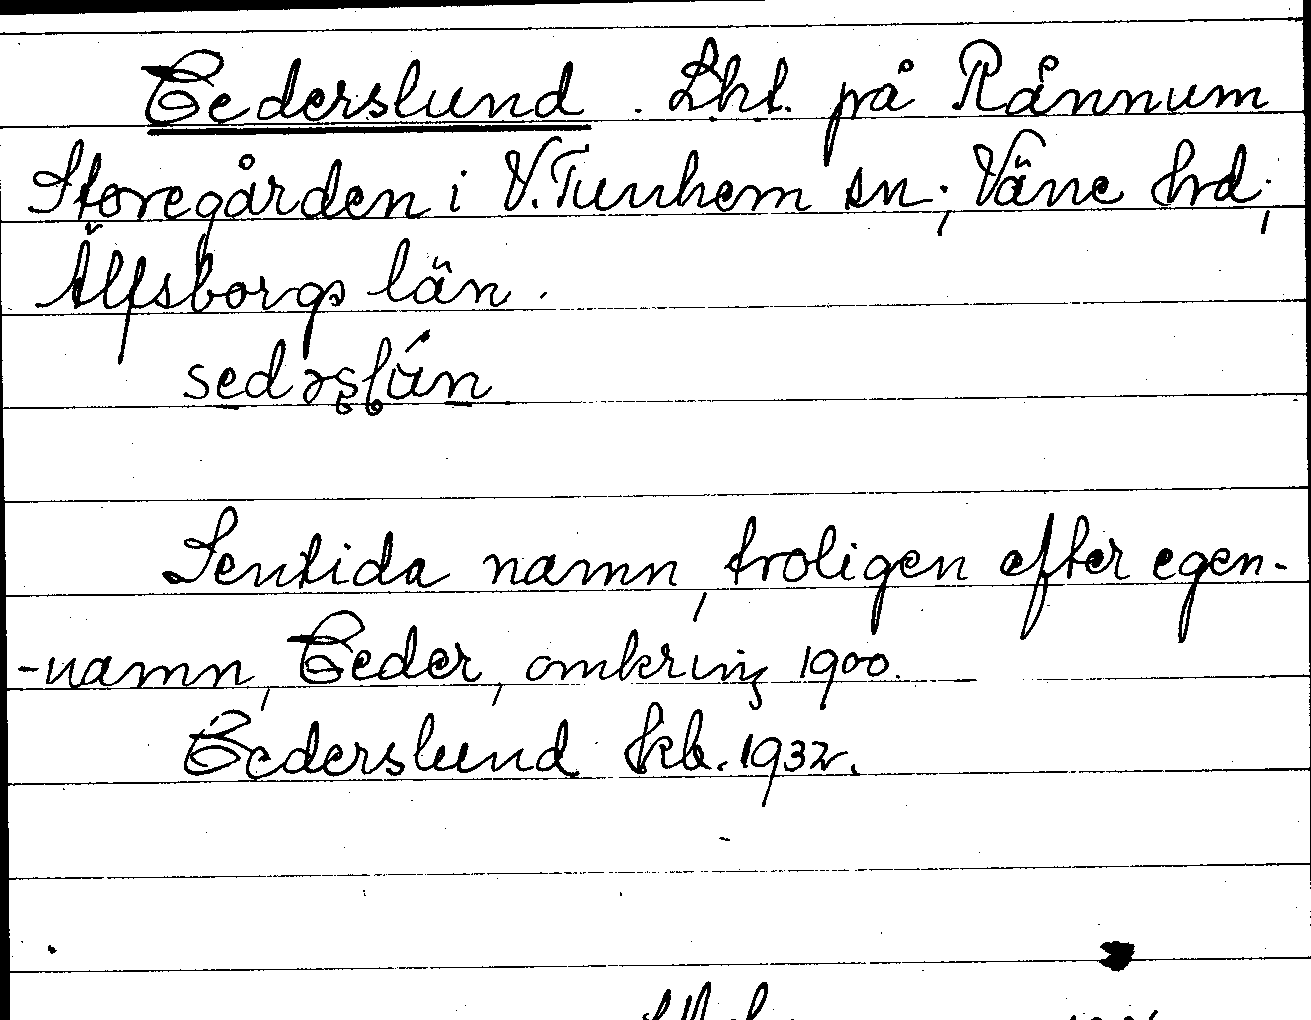 Cederslund. Lht. på Rånnum
Storegården i V. Tunhem sn., Väne hrd.,
Älfsborgs län.
Sentida namn, troligen efter egen-
-namn, Ceder, omkring 1900.
Cederslund kb. 1932.